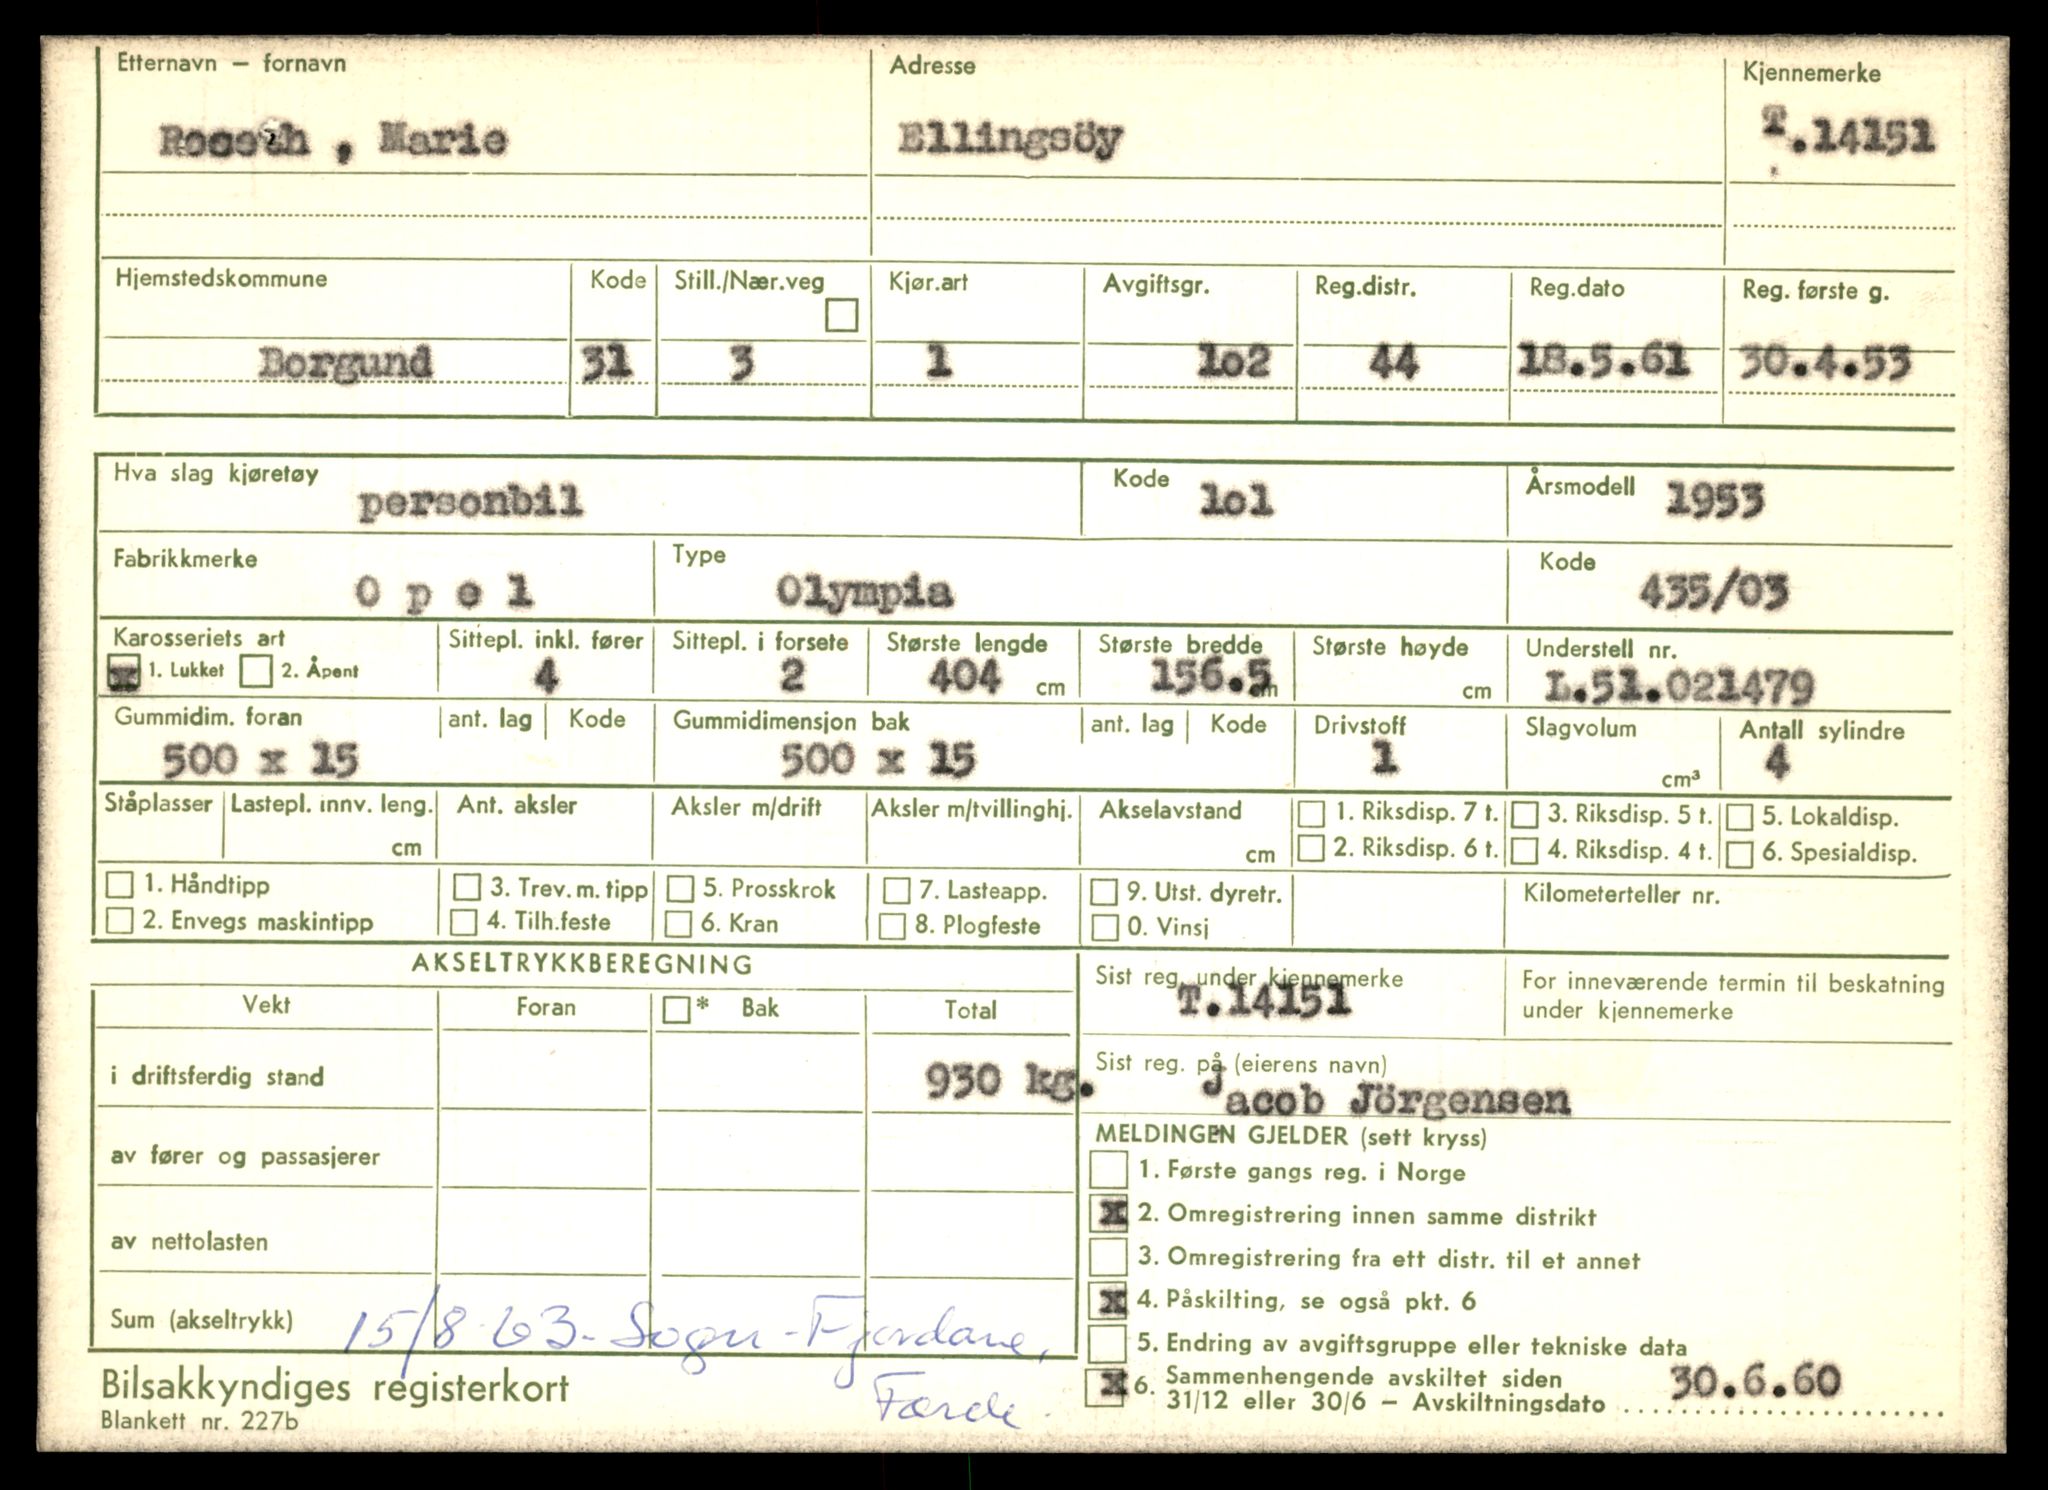 Etternavn – fornavn Adresse Kjennemerke
Roseth , Marie Ellingsöy T.14151
Hjemstedskommune Kode Still./Nær.veg Kjør.art Avgiftsgr. Reg.distr. Reg.dato Reg. første g.
Borgund 31 3 1 1o2 44 18.5.61 30.4.53
Hva slag kjøretøy personbil Kode 1o1 Årsmodell 1953
Fabrikkmerke Type Kode
O p e l Olympia 435/03
Karosseriets art Sittepl. inkl. fører Sittepl. i forsete Største lengde Største bredde Største høyde Understell nr.
x 1. Lukket 2. Åpent 4 2 404 cm 156.5 cm cm L.51.021479
Gummidim. foran ant. lag Kode Gummidimensjon bak ant. lag Kode Drivstoff Slagvolum Antall sylindre
500 x 15 500 x 15 1 cm³ 4
Ståplasser Lastepl. innv. leng. Ant. aksler Aksler m/drift Aksler m/tvillinghj. Akselavstand 1. Riksdisp. 7 t. 3. Riksdisp. 5 t. 5. Lokaldisp.
cm cm 2. Riksdisp. 6 t. 4. Riksdisp. 4 t. 6. Spesialdisp.
1. Håndtipp 3. Trev. m. tipp 5. Prosskrok 7. Lasteapp. 9. Utst. dyretr. Kilometerteller nr.
2. Envegs maskintipp 4. Tilh.feste 6. Kran 8. Plogfeste 0. Vinsj
AKSELTRYKKBEREGNING
Vekt Foran * Bak Total
i driftsferdig stand 930 kg.
av fører og passasjerer
av nettolasten
Sum (akseltrykk)
Sist reg. under kjennemerke
T.14151
For inneværende termin til beskatning
under kjennemerke
Sist reg. på (eierens navn)
Jacob Jörgensen
MELDINGEN GJELDER (sett kryss)
1. Første gangs reg. i Norge
x 2. Omregistrering innen samme distrikt
3. Omregistrering fra ett distr. til et annet
x 4. Påskilting, se også pkt. 6
5. Endring av avgiftsgruppe eller tekniske data
x 6. Sammenhengende avskiltet siden
31/12 eller 30/6 – Avskiltningsdato 30.6.60
15/8-63 - Sogn - Fjordane,
Førde.
Bilsakkyndiges registerkort
Blankett nr. 227b